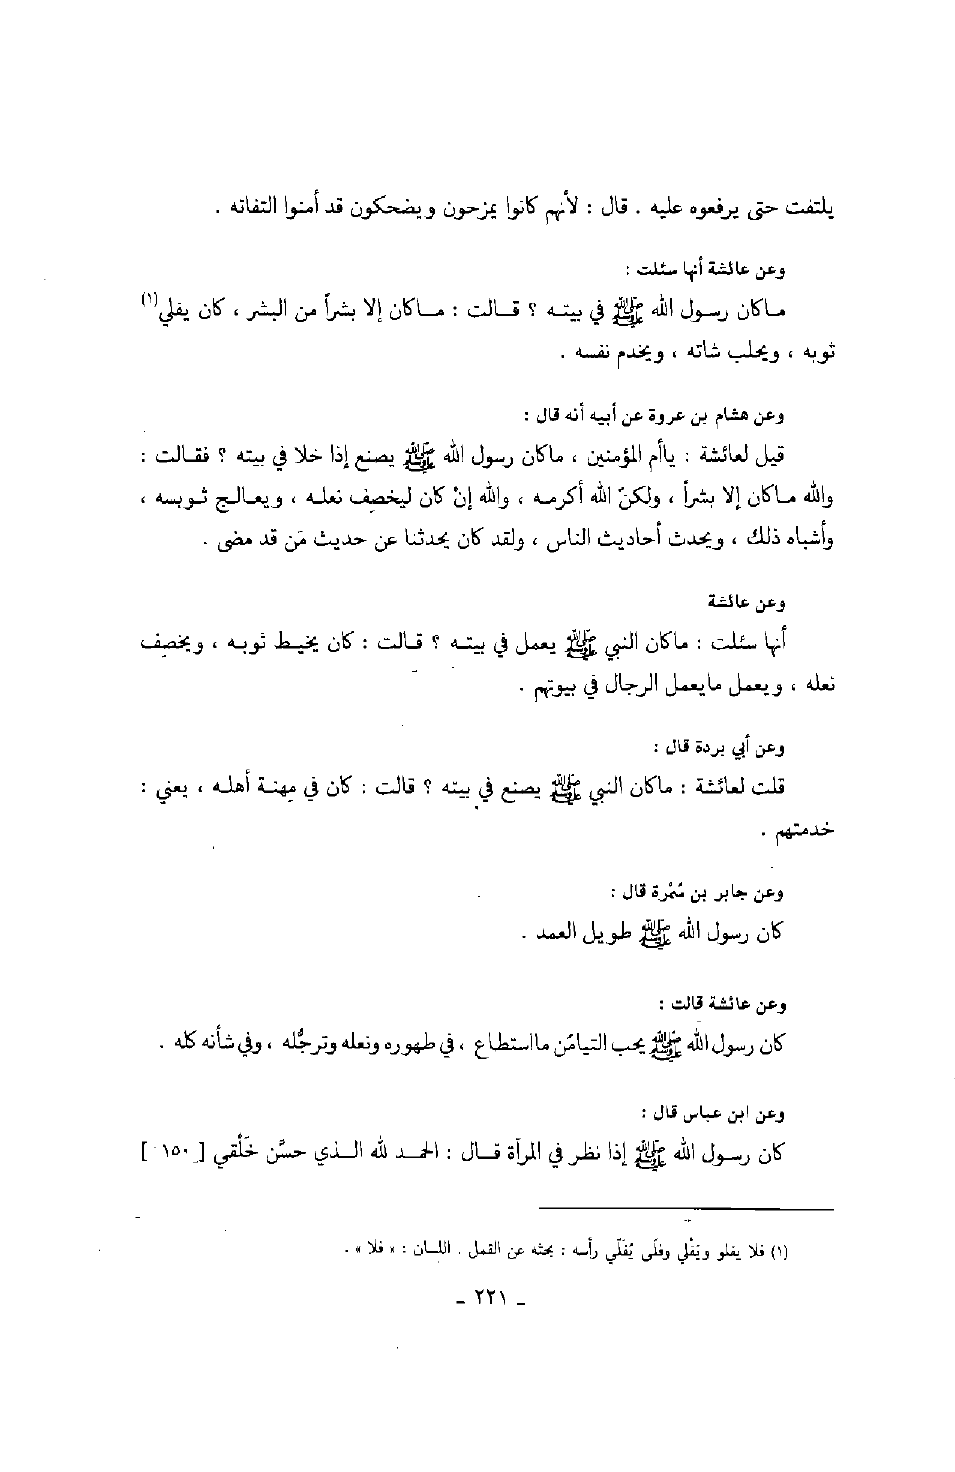 يلتفت حتى يرفعوه عليه . قال : لأنهم كانوا يمزحون ويضحكون قد أمنوا التفاته .
وعن عائشة أنها سئلت :
ماكان رسول الله ﷺ في بيته ؟ قالت : ماكان إلا بشراً من البشر ، كان يفلي(١)
ثوبه ، ويحلب شاته ، ويخدم نفسه .
وعن هشام بن عروة عن أبيه أنه قال :
قيل لعائشة : ياأم المؤمنين ، ماكان رسول الله ﷺ يصنع إذا خلا في بيته ؟ فقالت :
والله ماكان إلا بشراً ، ولكنّ الله أكرمه ، والله إنْ كان ليخصِف نعله ، ويعالج ثوبه ،
وأشباه ذلك ، ويحدث أحاديث الناس ، ولقد كان يحدثنا عن حديث مَن قد مضى .
وعن عائشة
أنها سئلت : ماكان النبي ﷺ يعمل في بيته ؟ قالت : كان يخيط ثوبه ، ويخصِف
نعله ، ويعمل مايعمل الرجال في بيوتهم .
وعن أبي بردة قال :
قلت لعائشة : ماكان النبي ﷺ يصنع في بيته ؟ قالت : كان في مِهنة أهله ، يعني :
خدمتهم .
وعن جابر بن سُمْرة قال :
كان رسول الله ﷺ طويل العمد .
وعن عائشة قالت :
كان رسول الله ﷺ يحب التيامُن مااستطاع ، في طهوره ونعله وترجُّله ، وفي شأنه كله .
وعن ابن عباس قال :
كان رسول الله ﷺ إذا نظر في المرآة قال : الحمد لله الذي حسَّن خَلْقي [ ١٥٠ ]
(١) فلا يفلو ويَفْلي وفلَى يُفَلّي رأسه : بحثه عن القمل . اللسان : « فلا » .
ـ ٢٢١ ـ